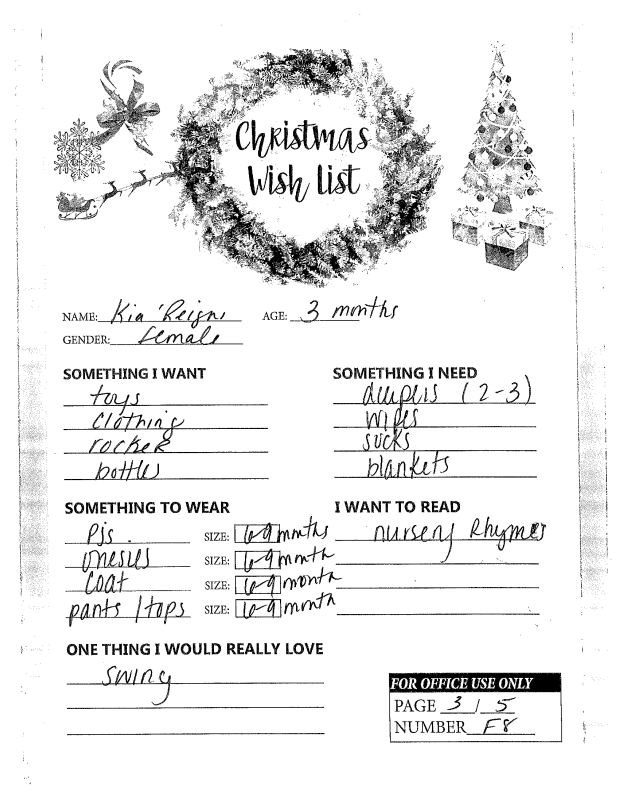 Christmas
Wish List
NAME: Kia'Reign AGE: 3 months
GENDER: female
SOMETHING I WANT
toys
clothing
rocker
bottles
SOMETHING I NEED
diapers (2-3)
wipes
socks
blankets
SOMETHING TO WEAR
Pjs. SIZE: 6-9 months
onesies SIZE: 6-9 month
coat SIZE: 6-9 month
pants / tops SIZE: 6-9 month
I WANT TO READ
nursery Rhymes
ONE THING I WOULD REALLY LOVE
swing
FOR OFFICE USE ONLY
PAGE 3 / 5
NUMBER F8